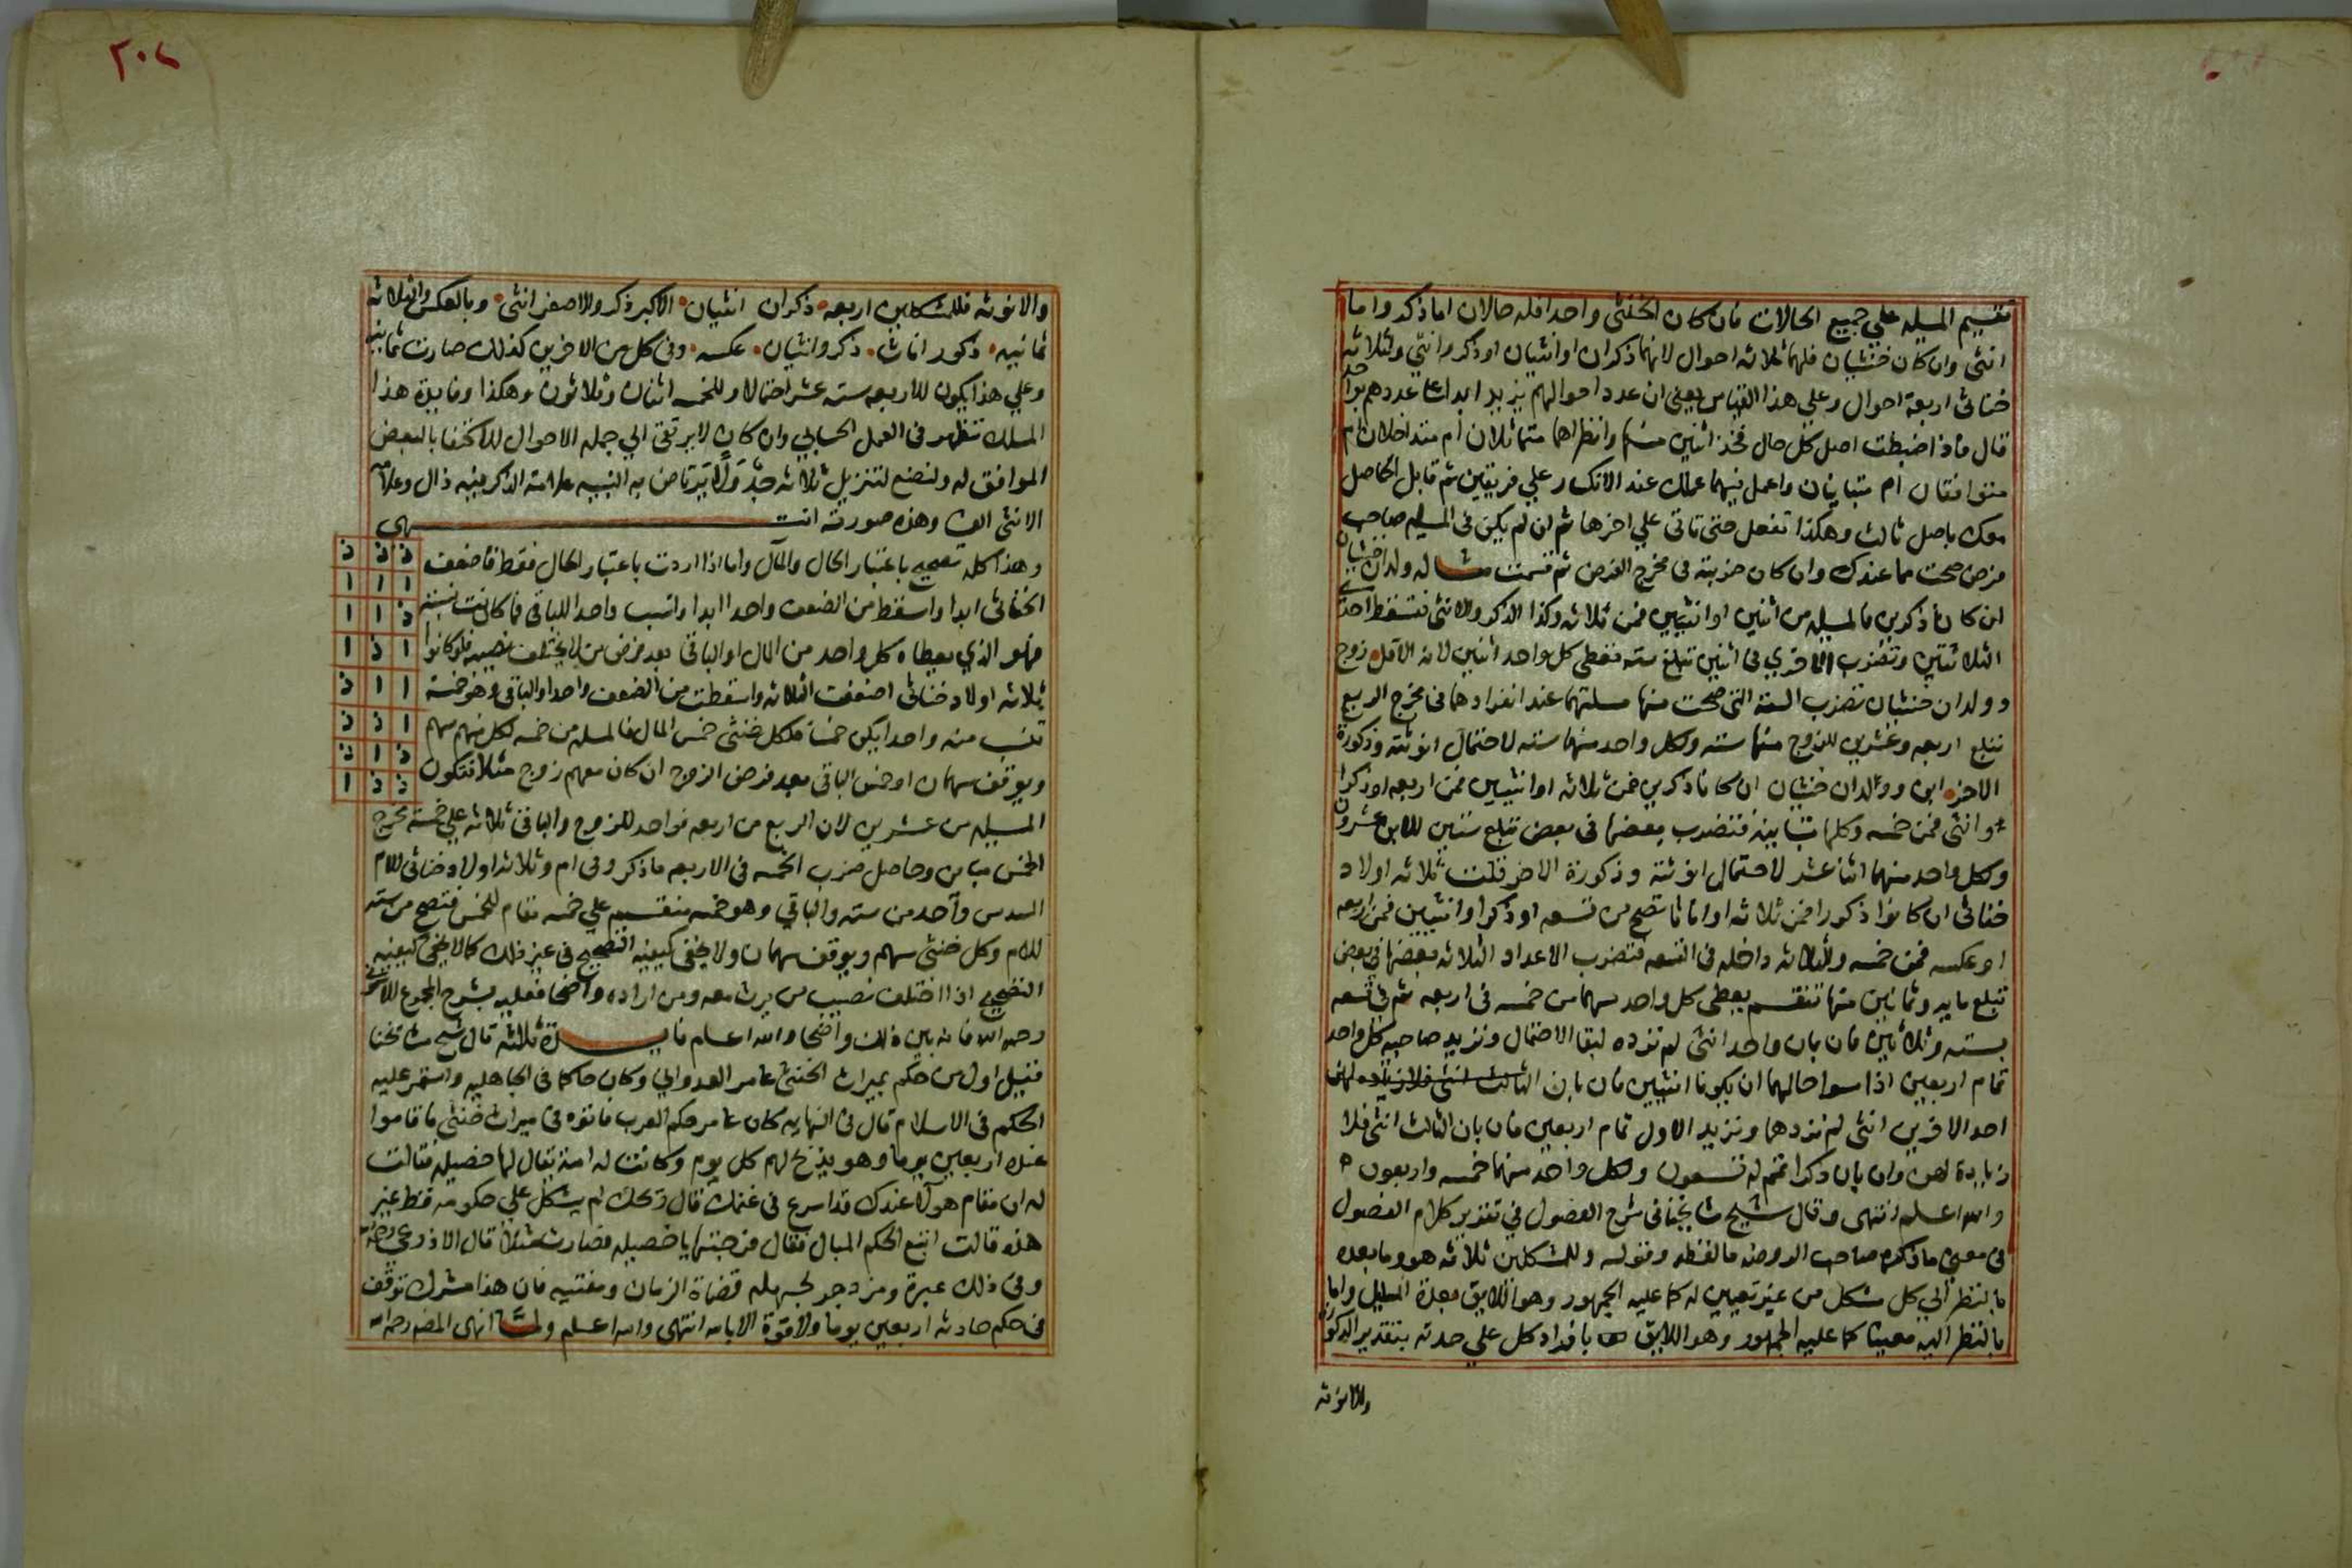 تقسيم المسيله علي جميع الحالات فان كان الخنثي واحدا فله حالان اما ذكر واما
انثي وان كان خنثيان فلهما ثلاثه احوال لانهما ذكران او انثيان او ذكر وانثي ولثلاثه
خناثي اربعة احوال وعلي هذا القياس يعني ان عدد احوالهم يزيد ابدا علي عددهم بواحد
قال فاذا ضبطت اصل كل حال فخذ اثنين منها وانظر اهما متماثلان ام متداخلان ام
متوافقان ام متباينان واعمل فيهما عملك عند الانكسار علي فريقين ثم قابل الحاصل
معك باصل ثالث وهكذا تفعل حتي تاتي علي اخرها ثم ان لم يكن في المسيله صاحب
فرض صحت مما عندك وان كان ضربته في مخرج الفرض ثم قسمت مثاله ولدان خنثيان
ان كانا ذكرين فالمسيله من اثنين او انثيين فمن ثلاثه وكذا الذكر والانثي فتسقط احدي
الثلاثتين وتضرب الاخري في اثنين تبلغ سته فتعطي كل واحد اثنين لانه الاقل زوج
وولدان خنثيان تضرب السته التي صحت منها مسلتهما عند انفرادهما في مخرج الربع
تبلغ اربعه وعشرين للزوج منها سته ولكل واحد منهما سته لاحتمال انوثته وذكورة
الاخر ابن وولدان خنثيان ان كانا ذكرين فمن ثلاثه او انثيين فمن اربعه او ذكرا
وانثي فمن خمسه وكلها متباينه فتضرب بعضها في بعض تبلغ ستين للابن عشرون
ولكل واحد منهما اثنا عشر لاحتمال انوثته وذكورة الاخر قلت ثلاثه اولاد
خناثي ان كانوا ذكورا فمن ثلاثه او اناثا تصح من تسعه او ذكرا وانثيين فمن اربعه
او عكسه فمن خمسه والثلاثه داخله في التسعه فتضرب الاعداد الثلاثه بعضها في بعض
تبلغ مايه وثمانين منها تنقسم يعطي كل واحد سهما من خمسه في اربعه ثم في تسعه
بسته وثلاثين فان بان واحد انثي لم نزده لبقا الاحتمال ونزيد صاحبيه كل واحد
تمام اربعين اذا اسوا حالهما ان يكونا انثيين فان بان الثالث انثي فلا زياده لهن
احد الاخرين انثي لم نزدهما ونزيد الاول تمام اربعين فان بان الثالث انثي فلا
زيادة لهن وان بان ذكرا تمم له تسعون ولكل واحد منهما خمسه واربعون ه
والله اعلم انتهي وقال شيخ شايخنا في شرح الفصول في تقدير كلام الفصول
في معني ما ذكره صاحب الروضه ما لفظه وقوله وللمشكلين ثلاثه هو وما بعده
بالنظر الي كل مشكل من غير تعيين له كما عليه الجمهور وهو اللايق بعدة المسايل واما
بالنظر اليه معينا كما عليه الجمهور وهو اللايق بافراد كل علي حدته بتقدير الذكورة
والانوثه
٢٠٧
والانوثه فللمشكلين اربعه ذكران انثيان الاكبر ذكر والاصغر انثي وبالعكس وللثلاثه
ثمانيه ذكور اناث ذكر وانثيان عكسه وفي كل من الاخرين كذلك صارت ثمانيه
وعلي هذا يكون للاربعه سته عشر احتمالا وللخمسه اثنان وثلاثون وهكذا وفايدة هذا
المسلك تظهر في العمل الحسابي وان كان لا يرتقي الي جمله الاحوال للاكتفا بالبعض
الموافق له ولنضع لتنزيل ثلاثه جدولا يرتاض به النبيه علامة الذكر فيه ذال وعلامه
الانثي الف وهذه صورته انتهي
وهذا كله تصحيح باعتبار الحال والمآل واما اذا اردت باعتبار الحال فقط فاضعف
الخناثي ابدا واسقط من الضعف واحدا ابدا وانسب واحدا للباقي فما كانت نسبته
فهو الذي يعطاه كل واحد من المال او الباقي بعد فرض من لا يختلف نصيبه فلو كانوا
ثلاثه اولاد خناثي اضعفت الثلاثه واسقطت من الضعف واحدا والباقي وهو خمسة
تنسب منه واحدا يكن خمسا فلكل خنثي خمس المال فالمسله من خمسه لكل منهم سهم
ويوقف سهمان او خمس الباقي بعد فرض الزوج ان كان معهم زوج مثلا فتكون
ذ ذ ذ
ا ا ا
ذ ا ا
ا ذ ا
ا ا ذ
ا ذ ذ
ذ ا ذ
ذ ذ ا
المسيله من عشرين لان الربع من اربعه فواحد للزوج والباقي ثلاثه علي خمسة مخرج
الخمس مباين وحاصل ضرب الخمسه في الاربعه ما ذكر وفي ام وثلاثه اولاد خناثي للام
السدس واحد من سته والباقي وهو خمسه منقسم علي خمسه مقام للخمس فتصح من سته
للام وكل خنثي سهم ويوقف سهمان ولا يخفي كيفيه التصحيح في غير ذلك كما لا يخفي كيفيه
التصحيح اذا اختلف نصيب من يرث معه ومن اراده واضحا فعليه بشرح المجموع للاشموني
رحمه الله فانه بين ذلك واضحا والله اعلم فايدة ثلاثه قال شيخ شايخنا
فقيل اول من حكم بميراث الخنثي عامر العدواني وكان حاكما في الجاهليه واستمر عليه
الحكم في الاسلام قال في النهايه كان عامر حكم العرب فاتوه في ميراث خنثي فاقاموا
عنده اربعين يوما وهو يذبح لهم كل يوم وكانت له امة يقال لها خصيله فقالت
له ان مقام هولا عندك قد اسرع في غنمك قال ويحك لم يشكل علي حكومه قط غير
هذه قالت اتبع الحكم المبال فقال فرجتها يا خصيله فصارت مثلا قال الاذرعي رحمه الله
وفي ذلك عبرة ومزدجر لجهله قضاة الزمان ومفتييه فان هذا مشرك توقف
في حكم حادثه اربعين يوما ولا قوة الا بالله انتهي والله اعلم ولما انهي المصم رحمه الله